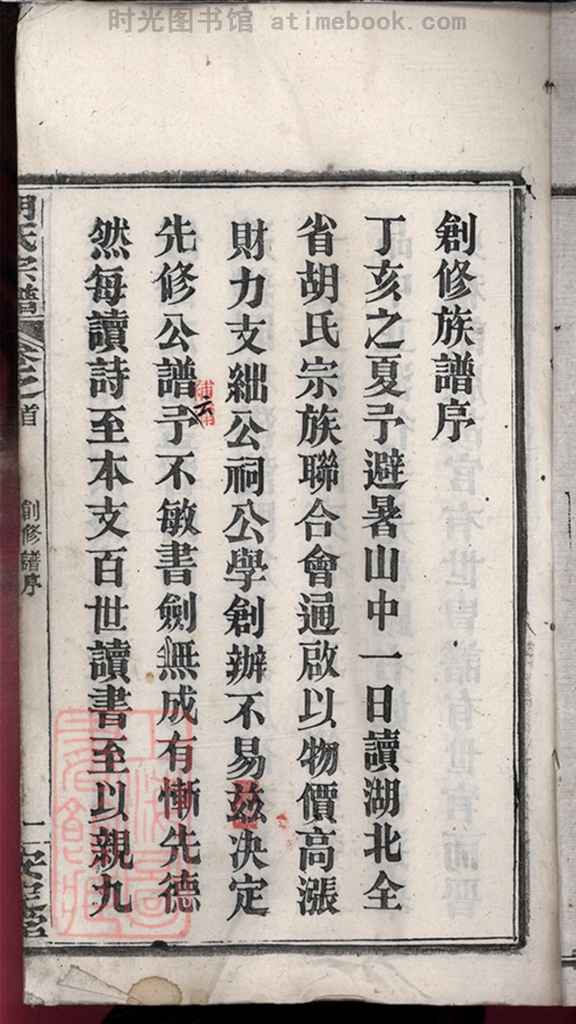 时光图书馆 atimebook.com
創修族譜序
丁亥之夏予避暑山中一日讀湖北全
省胡氏宗族聯合會通啟以物價高漲
財力支絀公祠公學創辦不易茲決定
先修公譜予不敏書劍無成有慚先德
然每讀詩至本支百世讀書至以親九
胡氏宗譜
卷之首
創修譜序
一
安定堂